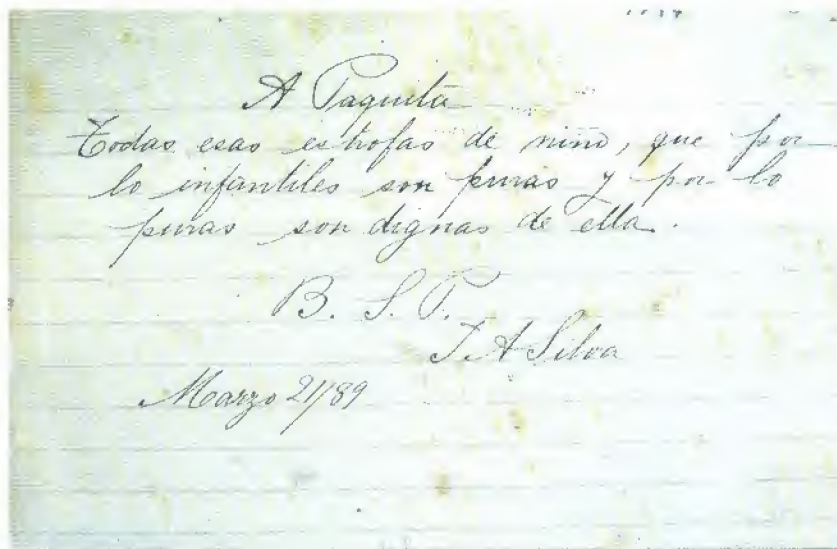 A Paquita
Todas esas estrofas de niño, que por
lo infantiles son puras y por lo
puras son dignas de ella.
B. S. P.
J. A Silva
Marzo 21/89